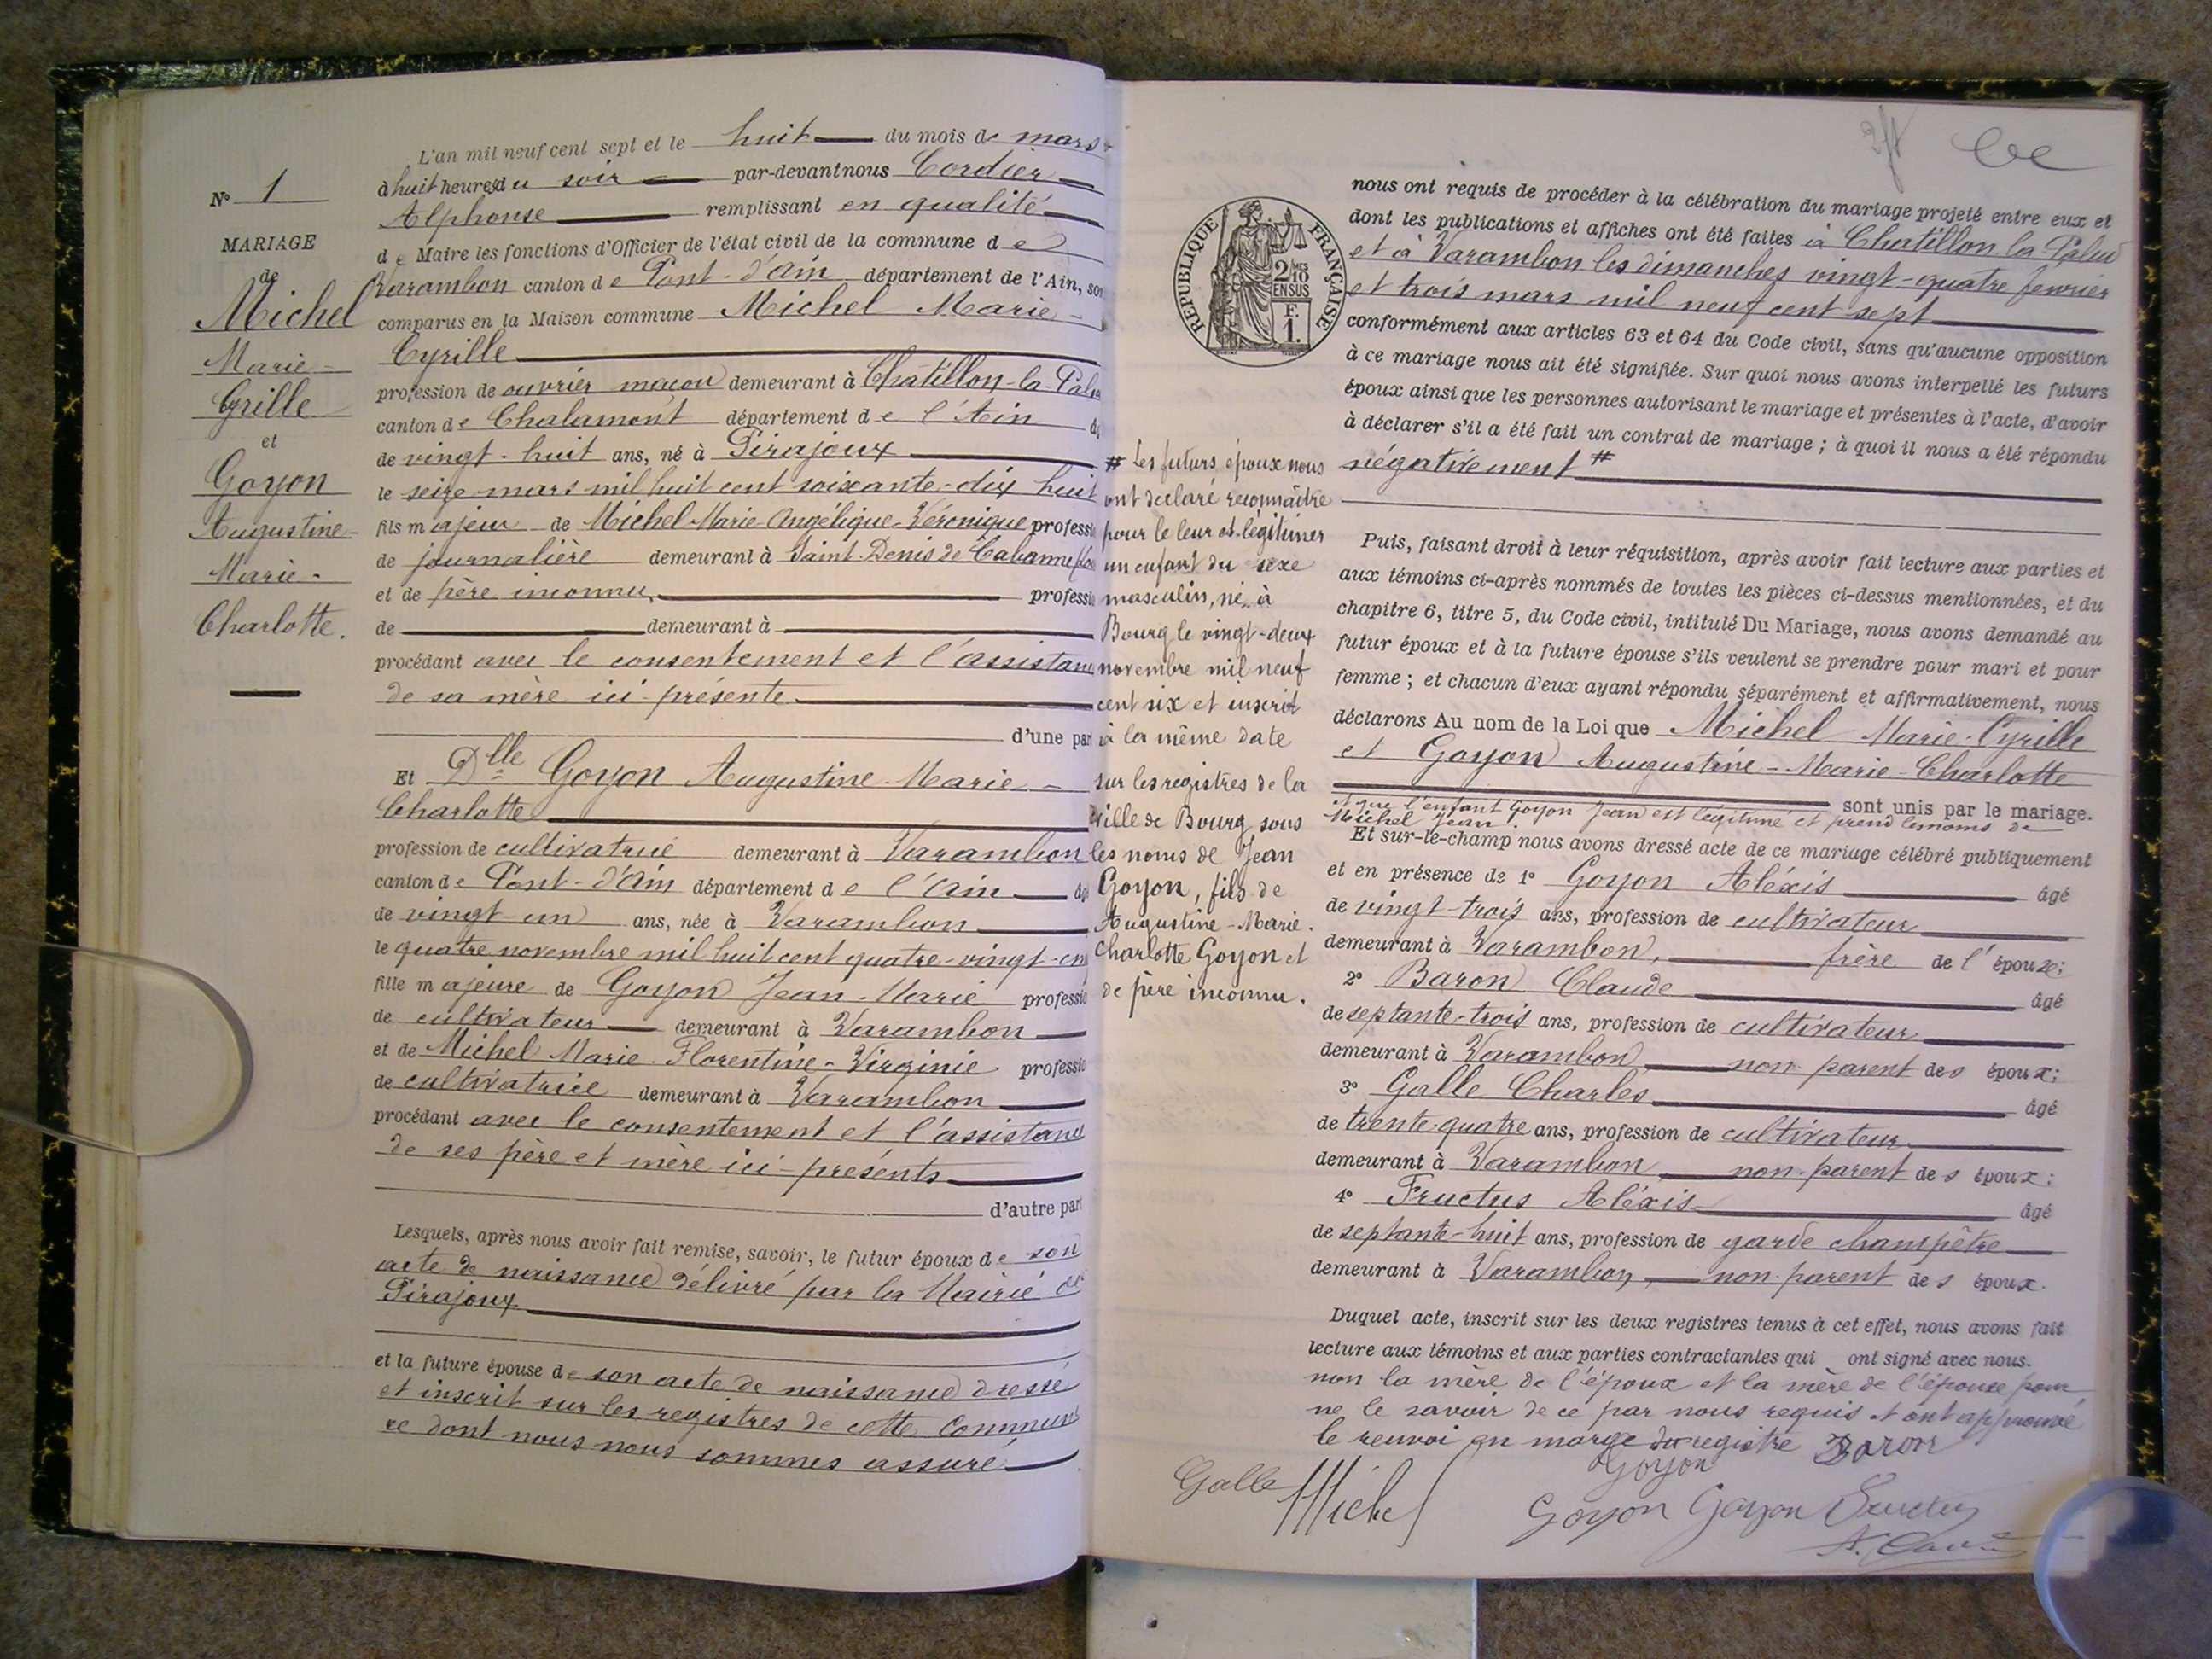 N° 1
MARIAGE
de
Michel
Marie-
Cyrille
et
Goyon
Augustine-
Marie-
Charlotte.
L'an mil neuf cent sept et le huit du mois de mars
à huit heures du soir par-devant nous Cordier
Alphonse remplissant en qualité
de Maire les fonctions d'Officier de l'état civil de la commune de
Varambon canton de Pont-d'Ain département de l'Ain, son
comparus en la Maison commune Michel Marie-
Cyrille
profession de ouvrier maçon demeurant à Chatillon-la-Palu
canton de Chalamont département de l'Ain
de vingt-huit ans, né à Pirajoux
le seize mars mil huit cent soixante-dix huit
fils majeur de Michel Marie-Angélique-Véronique professi
de journalière demeurant à Saint-Denis de Cabanne
et de père inconnu, professi
de demeurant à
procédant avec le consentement et l'assistance
de sa mère ici-présente
d'une par
Et Dlle Goyon Augustine-Marie-
Charlotte
profession de cultivatrice demeurant à Varambon
canton de Pont-d'Ain département de l'Ain âg
de vingt-un ans, née à Varambon
le quatre novembre mil huit cent quatre-vingt-cinq
fille majeure de Goyon Jean-Marie professi
de cultivateur demeurant à Varambon
et de Michel Marie-Florentine-Virginie professi
de cultivatrice demeurant à Varambon
procédant avec le consentement et l'assistance
de ses père et mère ici-présents
d'autre part
Lesquels, après nous avoir fait remise, savoir, le futur époux de son
acte de naissance délivré par la Mairie de
Pirajoux
et la future épouse de son acte de naissance dressé
et inscrit sur les registres de cette Commune
ce dont nous nous sommes assuré
# Les futurs époux nous
ont déclaré reconnaître
pour le leur et légitimer
un enfant du sexe
masculin, né à
Bourg le vingt-deux
novembre mil neuf
cent six et inscrit
à la même date
sur les registres de la
ville de Bourg sous
les noms de Jean
Goyon, fils de
Augustine-Marie-
Charlotte Goyon et
de père inconnu.
RÉPUBLIQUE FRANÇAISE
2/10MES
EN SUS
F.
1.
nous ont requis de procéder à la célébration du mariage projeté entre eux et
dont les publications et affiches ont été faites à Chatillon-la-Palud
et à Varambon les dimanches vingt-quatre février
et trois mars mil neuf cent sept
conformément aux articles 63 et 64 du Code civil, sans qu'aucune opposition
à ce mariage nous ait été signifiée. Sur quoi nous avons interpellé les futurs
époux ainsi que les personnes autorisant le mariage et présentes à l'acte, d'avoir
à déclarer s'il a été fait un contrat de mariage ; à quoi il nous a été répondu
négativement #
Puis, faisant droit à leur réquisition, après avoir fait lecture aux parties et
aux témoins ci-après nommés de toutes les pièces ci-dessus mentionnées, et du
chapitre 6, titre 5, du Code civil, intitulé Du Mariage, nous avons demandé au
futur époux et à la future épouse s'ils veulent se prendre pour mari et pour
femme ; et chacun d'eux ayant répondu séparément et affirmativement, nous
déclarons Au nom de la Loi que Michel Marie-Cyrille
et Goyon Augustine-Marie-Charlotte
sont unis par le mariage.
et que l'enfant Goyon Jean est légitimé et prend les noms de
Michel Jean.
Et sur-le-champ nous avons dressé acte de ce mariage célébré publiquement
et en présence de 1° Goyon Aléxis âgé
de vingt-trois ans, profession de cultivateur
demeurant à Varambon, frère de l'épouse;
2° Baron Claude âgé
de septante-trois ans, profession de cultivateur
demeurant à Varambon, non parent des époux;
3° Galle Charles âgé
de trente-quatre ans, profession de cultivateur
demeurant à Varambon, non-parent des époux;
4° Fructus Aléxis âgé
de septante-huit ans, profession de garde champêtre
demeurant à Varambon, non-parent des époux.
Duquel acte, inscrit sur les deux registres tenus à cet effet, nous avons fait
lecture aux témoins et aux parties contractantes qui ont signé avec nous.
non la mère de l'époux et la mère de l'épouse pour
ne le savoir de ce par nous requis et ont approuvé
le renvoi en marge du registre Baron
Goyon
Galle Michel Goyon Goyon Fructus